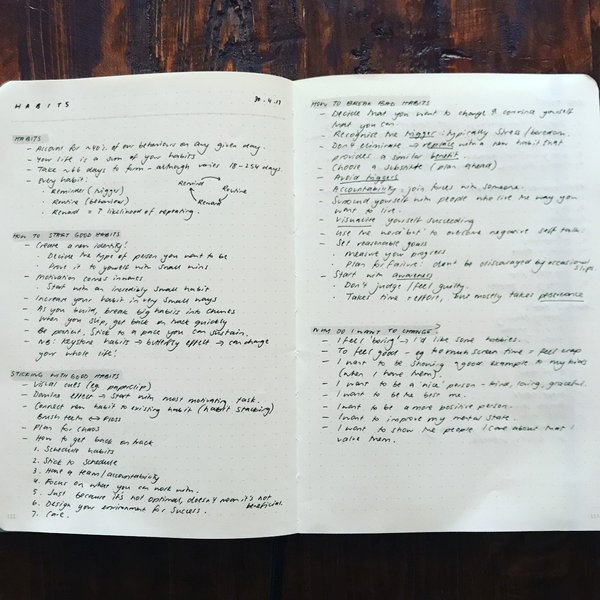 HABITS 30.4.17
HABITS
- Account for ~40% of our behaviours on any given day.
- Your life is a sum of your habits
- Take ~66 days to form - although varies 18-254 days.
- Every habit:
· Reminder (trigger)
· Routine (behaviour)
· Reward = ↑ likelihood of repeating.
Remind
Routine
Reward
HOW TO START GOOD HABITS
- Create a new identity!
· Decide the type of person you want to be
· Prove it to yourself with small wins
- Motivation comes innately
· Start with an incredibly small habit
- Increase your habit in very small ways
- As you build, break big habits into chunks
- When you slip, get back on track quickly
- Be patient. Stick to a pace you can sustain.
- NB: Keystone habits → butterfly effect → can change
your whole life!
STICKING WITH GOOD HABITS
- Visual cues (eg paperclip)
- Domino effect → Start with most motivating task.
- Connect new habit to existing habit (habit stacking)
Brush teeth → Floss
- Plan for chaos
- How to get back on track
1. Schedule habits
2. Stick to schedule
3. Have a team/accountability
4. Focus on what you can work with.
5. Just because it's not optimal, doesn't mean it's not
beneficial.
6. Design your environment for success.
7. Care.
HOW TO BREAK BAD HABITS
- Decide that you want to change & convince yourself
that you can.
- Recognise the trigger: typically stress/boredom.
- Don't eliminate → replace with a new habit that
provides a similar benefit.
- Choose a substitute (plan ahead)
- Avoid triggers
- Accountability - join forces with someone.
- Surround yourself with people who live the way you
want to live.
- Visualise yourself succeeding
- Use the word 'but' to overcome negative self talk.
- Set reasonable goals
· Measure your progress
· Plan for failure: don't be discouraged by occasional
slips.
- Start with awareness
· Don't judge/feel guilty.
· Takes time & effort, but mostly takes perseverance
WHY DO I WANT TO CHANGE?
- I feel 'boring' → I'd like some hobbies.
- To feel good - eg too much screen time = feel crap
- I want to be showing a good example to my kids
(when I have them).
- I want to be a 'nice' person - kind, loving, graceful.
- I want to be the best me.
- I want to be a more positive person.
- I want to improve my mental state.
- I want to show the people I care about that I
value them.